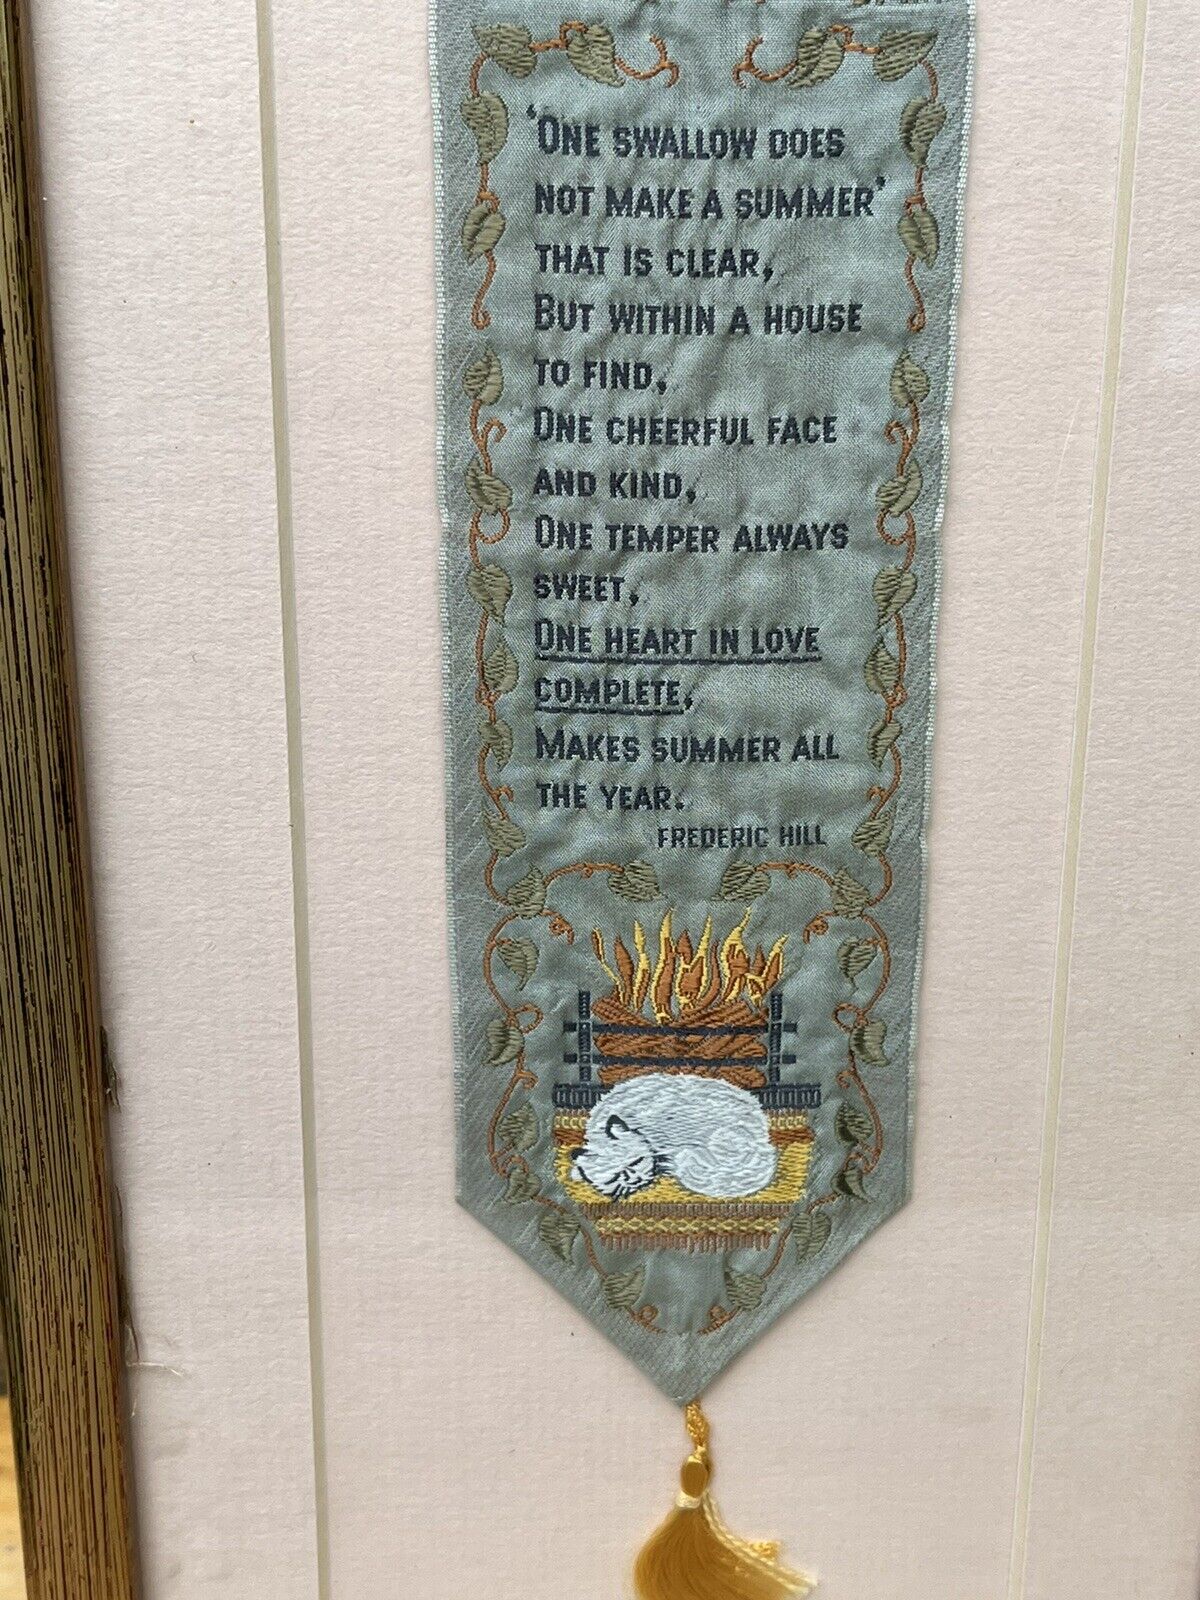 'One swallow does
not make a summer'
that is clear,
But within a house
to find,
One cheerful face
and kind,
One temper always
sweet,
One heart in love
complete,
Makes summer all
the year.
Frederic Hill